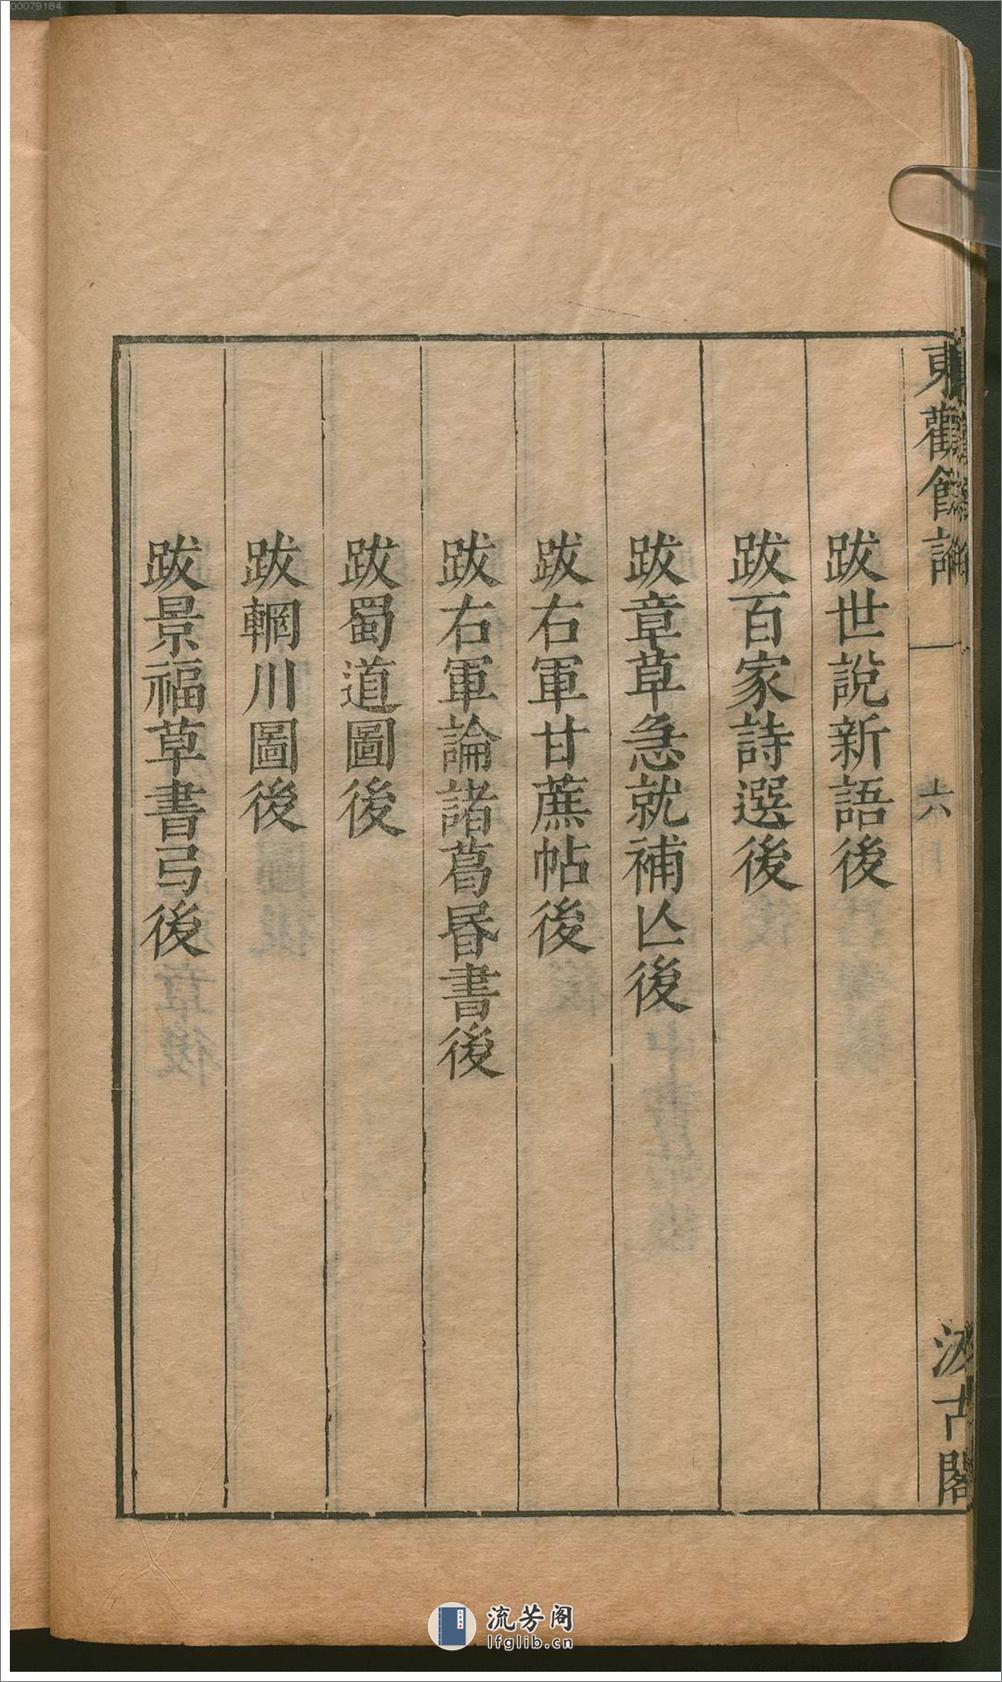 00079184
東觀餘論
六
汲古閣
跋世說新語後
跋百家詩選後
跋章草急就補亾後
跋右軍甘蔗帖後
跋右軍論諸葛昬書後
跋蜀道圖後
跋輞川圖後
跋景福草書弓後
流芳阁
lfglib.cn